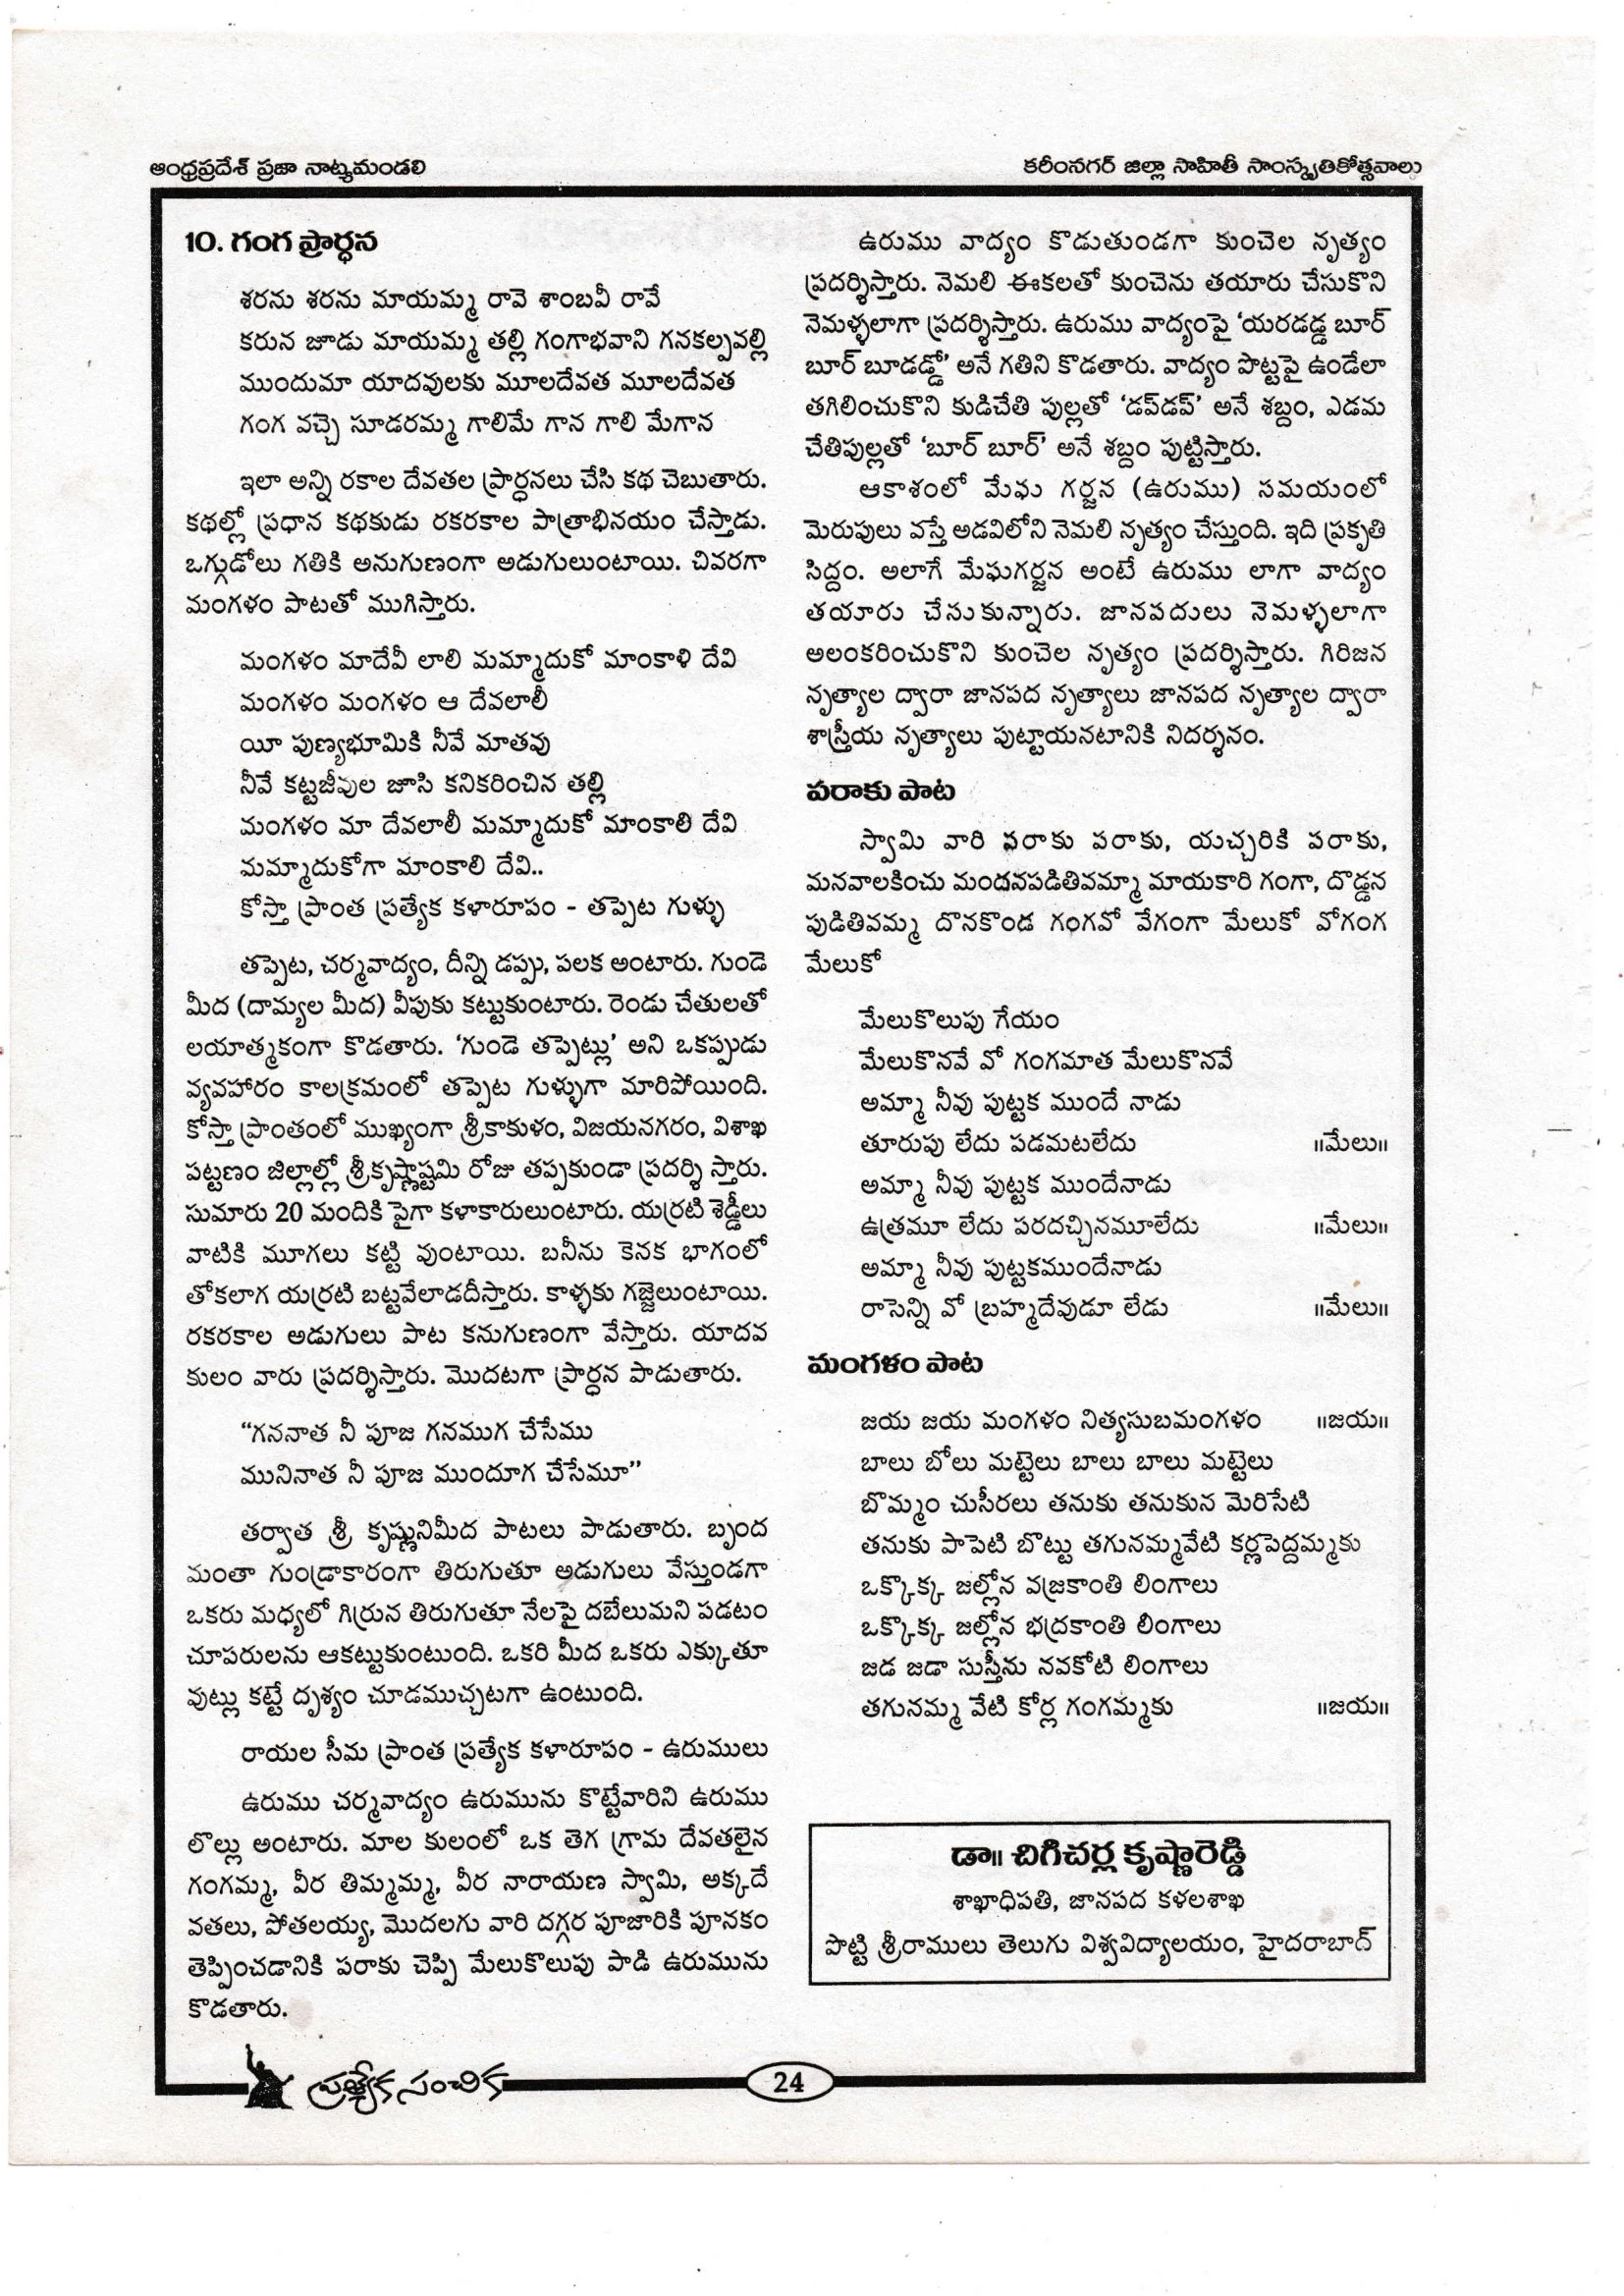 ఆంధ్రప్రదేశ్ ప్రజా నాట్యమండలి
కరీంనగర్ జిల్లా సాహితీ సాంస్కృతికోత్సవాలు
10. గంగ ప్రార్ధన
శరను శరను మాయమ్మ రావె శాంబవీ రావే
కరున జూడు మాయమ్మ తల్లి గంగాభవాని గనకల్పవల్లి
ముందుమా యాదవులకు మూలదేవత మూలదేవత
గంగ వచ్చె సూడరమ్మ గాలిమే గాన గాలి మేగాన
ఇలా అన్ని రకాల దేవతల ప్రార్ధనలు చేసి కథ చెబుతారు.
కథల్లో ప్రధాన కథకుడు రకరకాల పాత్రాభినయం చేస్తాడు.
ఒగ్గుడోలు గతికి అనుగుణంగా అడుగులుంటాయి. చివరగా
మంగళం పాటతో ముగిస్తారు.
మంగళం మాదేవీ లాలి మమ్మాదుకో మాంకాళి దేవి
మంగళం మంగళం ఆ దేవలాలీ
యీ పుణ్యభూమికి నీవే మాతవు
నీవే కట్టజీవుల జూసి కనికరించిన తల్లి
మంగళం మా దేవలాలీ మమ్మాదుకో మాంకాలి దేవి
మమ్మాదుకోగా మాంకాలి దేవి..
కోస్తా ప్రాంత ప్రత్యేక కళారూపం - తప్పెట గుళ్ళు
తప్పెట, చర్మవాద్యం, దీన్ని డప్పు, పలక అంటారు. గుండె
మీద (దామ్యల మీద) వీపుకు కట్టుకుంటారు. రెండు చేతులతో
లయాత్మకంగా కొడతారు. ‘గుండె తప్పెట్లు’ అని ఒకప్పుడు
వ్యవహారం కాలక్రమంలో తప్పెట గుళ్ళుగా మారిపోయింది.
కోస్తా ప్రాంతంలో ముఖ్యంగా శ్రీకాకుళం, విజయనగరం, విశాఖ
పట్టణం జిల్లాల్లో శ్రీకృష్ణాష్టమి రోజు తప్పకుండా ప్రదర్శి స్తారు.
సుమారు 20 మందికి పైగా కళాకారులుంటారు. యర్రటి శెడ్డీలు
వాటికి మూగలు కట్టి వుంటాయి. బనీను కెనక భాగంలో
తోకలాగ యర్రటి బట్టవేలాడదీస్తారు. కాళ్ళకు గజ్జెలుంటాయి.
రకరకాల అడుగులు పాట కనుగుణంగా వేస్తారు. యాదవ
కులం వారు ప్రదర్శిస్తారు. మొదటగా ప్రార్ధన పాడుతారు.
“గననాత నీ పూజ గనముగ చేసేము
మునినాత నీ పూజ ముందూగ చేసేమూ”
తర్వాత శ్రీ కృష్ణునిమీద పాటలు పాడుతారు. బృంద
మంతా గుండ్రాకారంగా తిరుగుతూ అడుగులు వేస్తుండగా
ఒకరు మధ్యలో గిర్రున తిరుగుతూ నేలపై దబేలుమని పడటం
చూపరులను ఆకట్టుకుంటుంది. ఒకరి మీద ఒకరు ఎక్కుతూ
వుట్లు కట్టే దృశ్యం చూడముచ్చటగా ఉంటుంది.
రాయల సీమ ప్రాంత ప్రత్యేక కళారూపం - ఉరుములు
ఉరుము చర్మవాద్యం ఉరుమును కొట్టేవారిని ఉరుము
లొల్లు అంటారు. మాల కులంలో ఒక తెగ గ్రామ దేవతలైన
గంగమ్మ, వీర తిమ్మమ్మ, వీర నారాయణ స్వామి, అక్కదే
వతలు, పోతలయ్య, మొదలగు వారి దగ్గర పూజారికి పూనకం
తెప్పించడానికి పరాకు చెప్పి మేలుకొలుపు పాడి ఉరుమును
కొడతారు.
ఉరుము వాద్యం కొడుతుండగా కుంచెల నృత్యం
ప్రదర్శిస్తారు. నెమలి ఈకలతో కుంచెను తయారు చేసుకొని
నెమళ్ళలాగా ప్రదర్శిస్తారు. ఉరుము వాద్యంపై ‘యరడడ్డ బూర్
బూర్ బూడడ్డో’ అనే గతిని కొడతారు. వాద్యం పొట్టపై ఉండేలా
తగిలించుకొని కుడిచేతి పుల్లతో ‘డప్‌డప్’ అనే శబ్దం, ఎడమ
చేతిపుల్లతో ‘బూర్ బూర్’ అనే శబ్దం పుట్టిస్తారు.
ఆకాశంలో మేఘ గర్జన (ఉరుము) సమయంలో
మెరుపులు వస్తే అడవిలోని నెమలి నృత్యం చేస్తుంది. ఇది ప్రకృతి
సిద్దం. అలాగే మేఘగర్జన అంటే ఉరుము లాగా వాద్యం
తయారు చేసుకున్నారు. జానపదులు నెమళ్ళలాగా
అలంకరించుకొని కుంచెల నృత్యం ప్రదర్శిస్తారు. గిరిజన
నృత్యాల ద్వారా జానపద నృత్యాలు జానపద నృత్యాల ద్వారా
శాస్త్రీయ నృత్యాలు పుట్టాయనటానికి నిదర్శనం.
పరాకు పాట
స్వామి వారి పరాకు పరాకు, యచ్చరికి పరాకు,
మనవాలకించు మందనపడితివమ్మా మాయకారి గంగా, దొడ్డన
పుడితివమ్మ దొనకొండ గంగవో వేగంగా మేలుకో వోగంగ
మేలుకో
మేలుకొలుపు గేయం
మేలుకొనవే వో గంగమాత మేలుకొనవే
అమ్మా నీవు పుట్టక ముందే నాడు
తూరుపు లేదు పడమటలేదు ॥మేలు॥
అమ్మా నీవు పుట్టక ముందేనాడు
ఉత్రమూ లేదు పరదచ్చినమూలేదు ॥మేలు॥
అమ్మా నీవు పుట్టకముందేనాడు
రాసెన్ని వో బ్రహ్మదేవుడూ లేడు ॥మేలు॥
మంగళం పాట
జయ జయ మంగళం నిత్యసుబమంగళం ॥జయ॥
బాలు బోలు మట్టెలు బాలు బాలు మట్టెలు
బొమ్మం చుసీరలు తనుకు తనుకున మెరిసేటి
తనుకు పాపెటి బొట్టు తగునమ్మవేటి కర్ణపెద్దమ్మకు
ఒక్కొక్క జల్లోన వజ్రకాంతి లింగాలు
ఒక్కొక్క జల్లోన భద్రకాంతి లింగాలు
జడ జడా సుస్తీను నవకోటి లింగాలు
తగునమ్మ వేటి కోర్ల గంగమ్మకు ॥జయ॥
డా॥ చిగిచర్ల కృష్ణారెడ్డి
శాఖాధిపతి, జానపద కళలశాఖ
పొట్టి శ్రీరాములు తెలుగు విశ్వవిద్యాలయం, హైదరాబాద్
ప్రత్యేక సంచిక
24